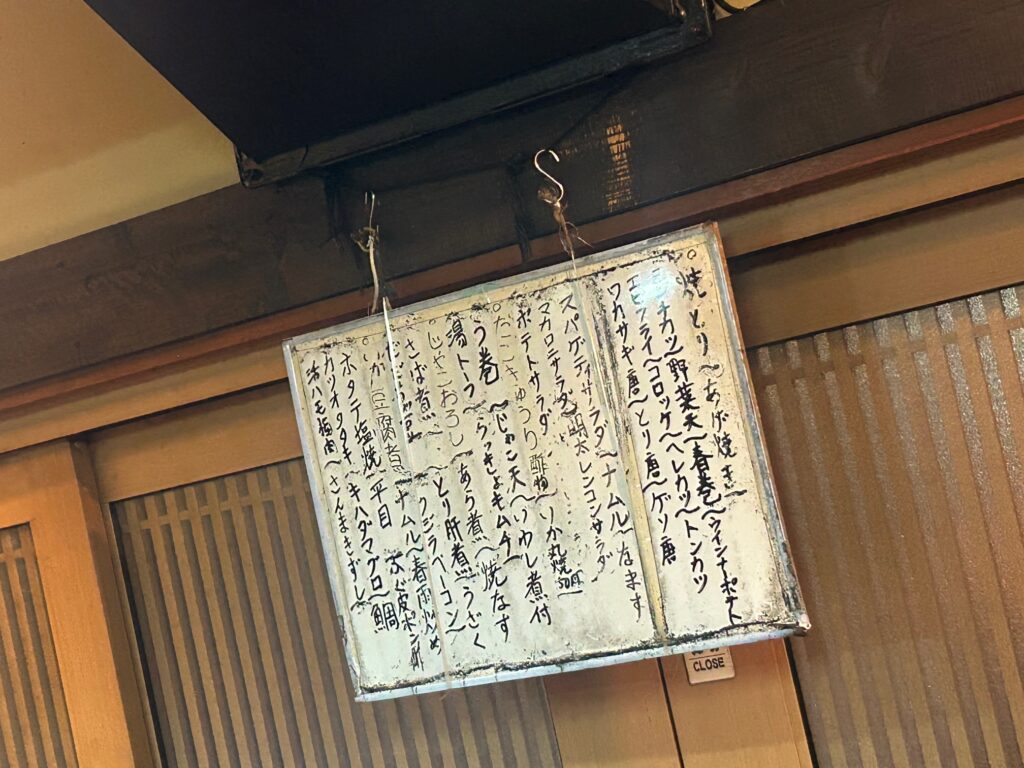 焼とり〜あげ焼き〜
チカツ〜野菜天〜春巻〜ウインナーポテト
エビフライ〜コロッケ〜ヘレカツ〜トンカツ
ワカサギ唐〜とり唐〜ゲソ唐
スパゲティサラダ〜ナムル〜なます
マカロニサラダ 明太レンコンサラダ
ポテトサラダ
たこきゅうり酢物〜いか丸焼
う巻〜じゃこ天〜いわし煮付
湯トフ〜らっきょキムチ〜焼なす
じゃこおろし〜あら煮〜うざく
さば煮〜とり肝煮〜
クジラベーコン〜
いか豆腐煮〜ナムル〜春雨炒め
ホタテ塩焼〜平目 ふぐ皮ポン酢
カツオタタキ〜キハダマグロ〜鯛
ハモ梅肉〜さんまきずし
CLOSE